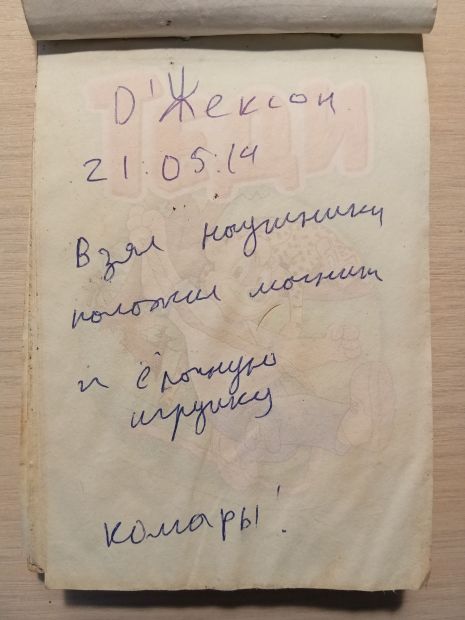 D'Жексон
21.05.14
Взял наушники
положил магнит
и ёлочную
игрушку
комары!